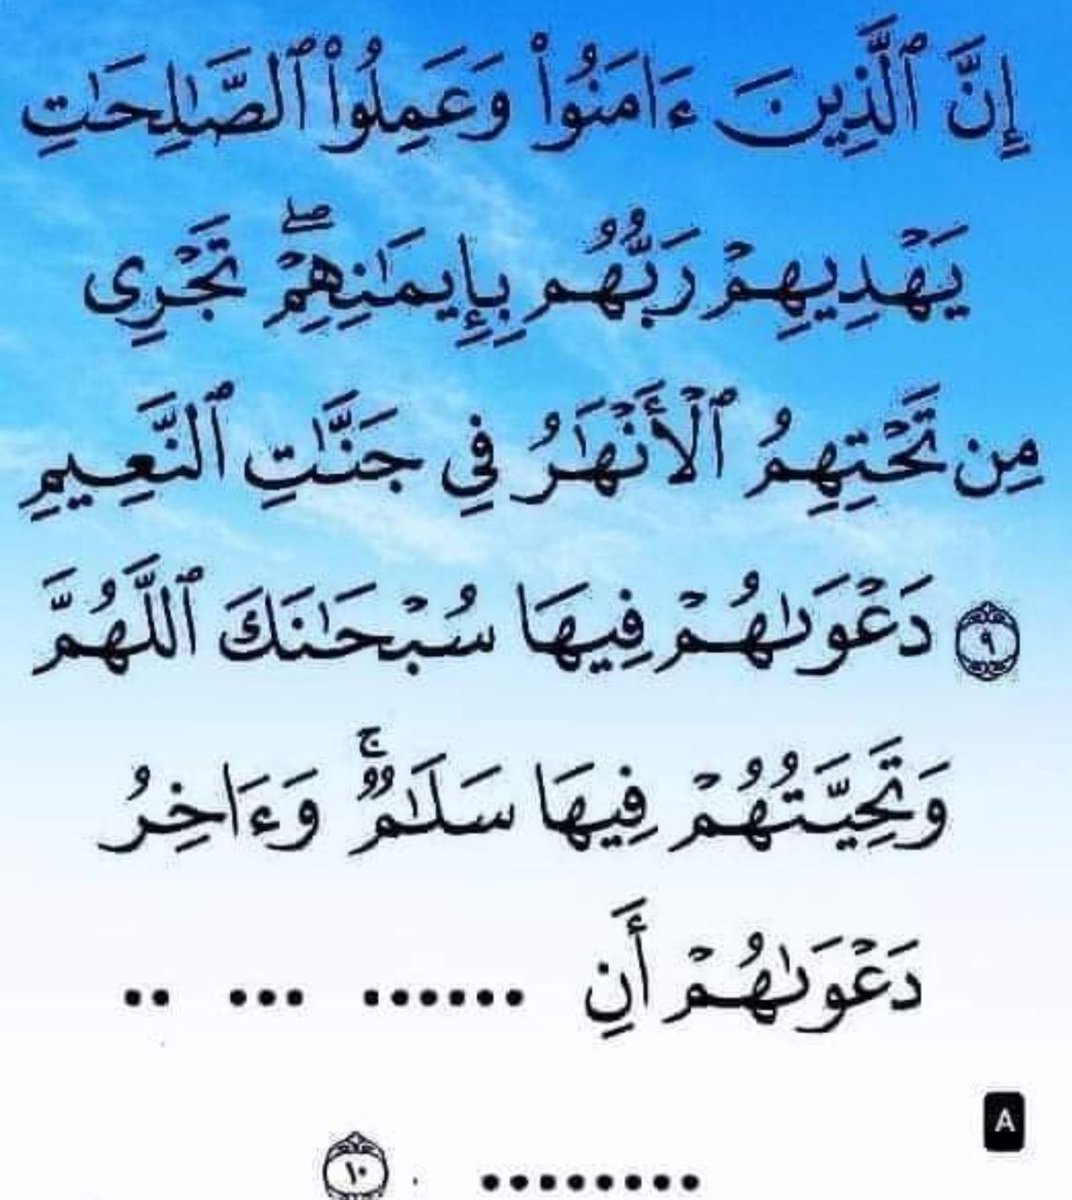 إِنَّ ٱلَّذِينَ ءَامَنُوا۟ وَعَمِلُوا۟ ٱلصَّـٰلِحَـٰتِ
يَهْدِيهِمْ رَبُّهُم بِإِيمَـٰنِهِمْ ۖ تَجْرِى
مِن تَحْتِهِمُ ٱلْأَنْهَـٰرُ فِى جَنَّـٰتِ ٱلنَّعِيمِ
٩ دَعْوَىٰهُمْ فِيهَا سُبْحَـٰنَكَ ٱللَّهُمَّ
وَتَحِيَّتُهُمْ فِيهَا سَلَـٰمٌ ۚ وَءَاخِرُ
دَعْوَىٰهُمْ أَنِ ...... ... ..
A
........ ١٠